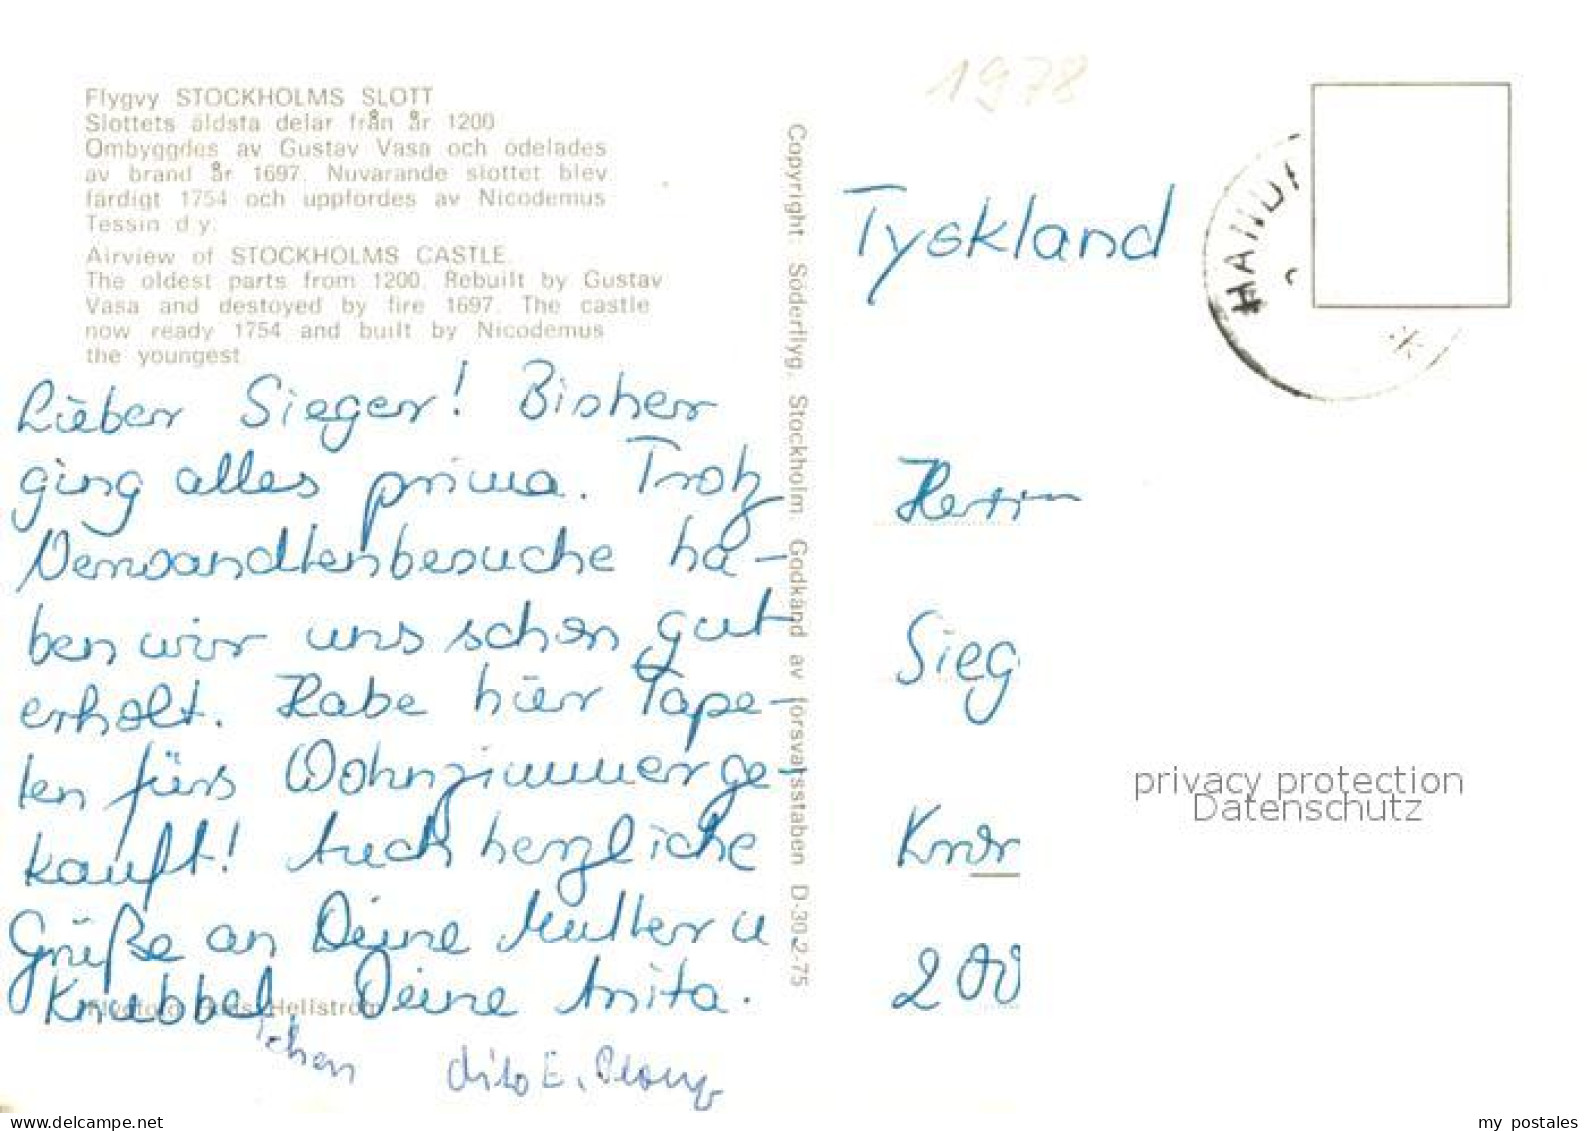 Flygvy STOCKHOLMS SLOTT
Slottets äldsta delar från år 1200
Ombyggdes av Gustav Vasa och ödelades
av brand år 1697. Nuvarande slottet blev
färdigt 1754 och uppfördes av Nicodemus
Tessin d y.
Airview of STOCKHOLMS CASTLE.
The oldest parts from 1200. Rebuilt by Gustav
Vasa and destoyed by fire 1697. The castle
now ready 1754 and built by Nicodemus
the youngest
Lieber Sieger! Bisher
ging alles prima. Trotz
Verwandtenbesuche ha-
ben wir uns schon gut
erholt. Habe hier Tape-
ten fürs Wohnzimmer ge-
kauft! Auch herzliche
Grüße an Deine Mutter u
Knubbel Deine Anita.
chen dito E.
Hellström
Copyright: Söderflyg, Stockholm. Godkänd av försvarsstaben D-30-2-75
1978
Tyskland
Herrn
Sieg
200
privacy protection
Datenschutz
www.delcampe.net
my postales